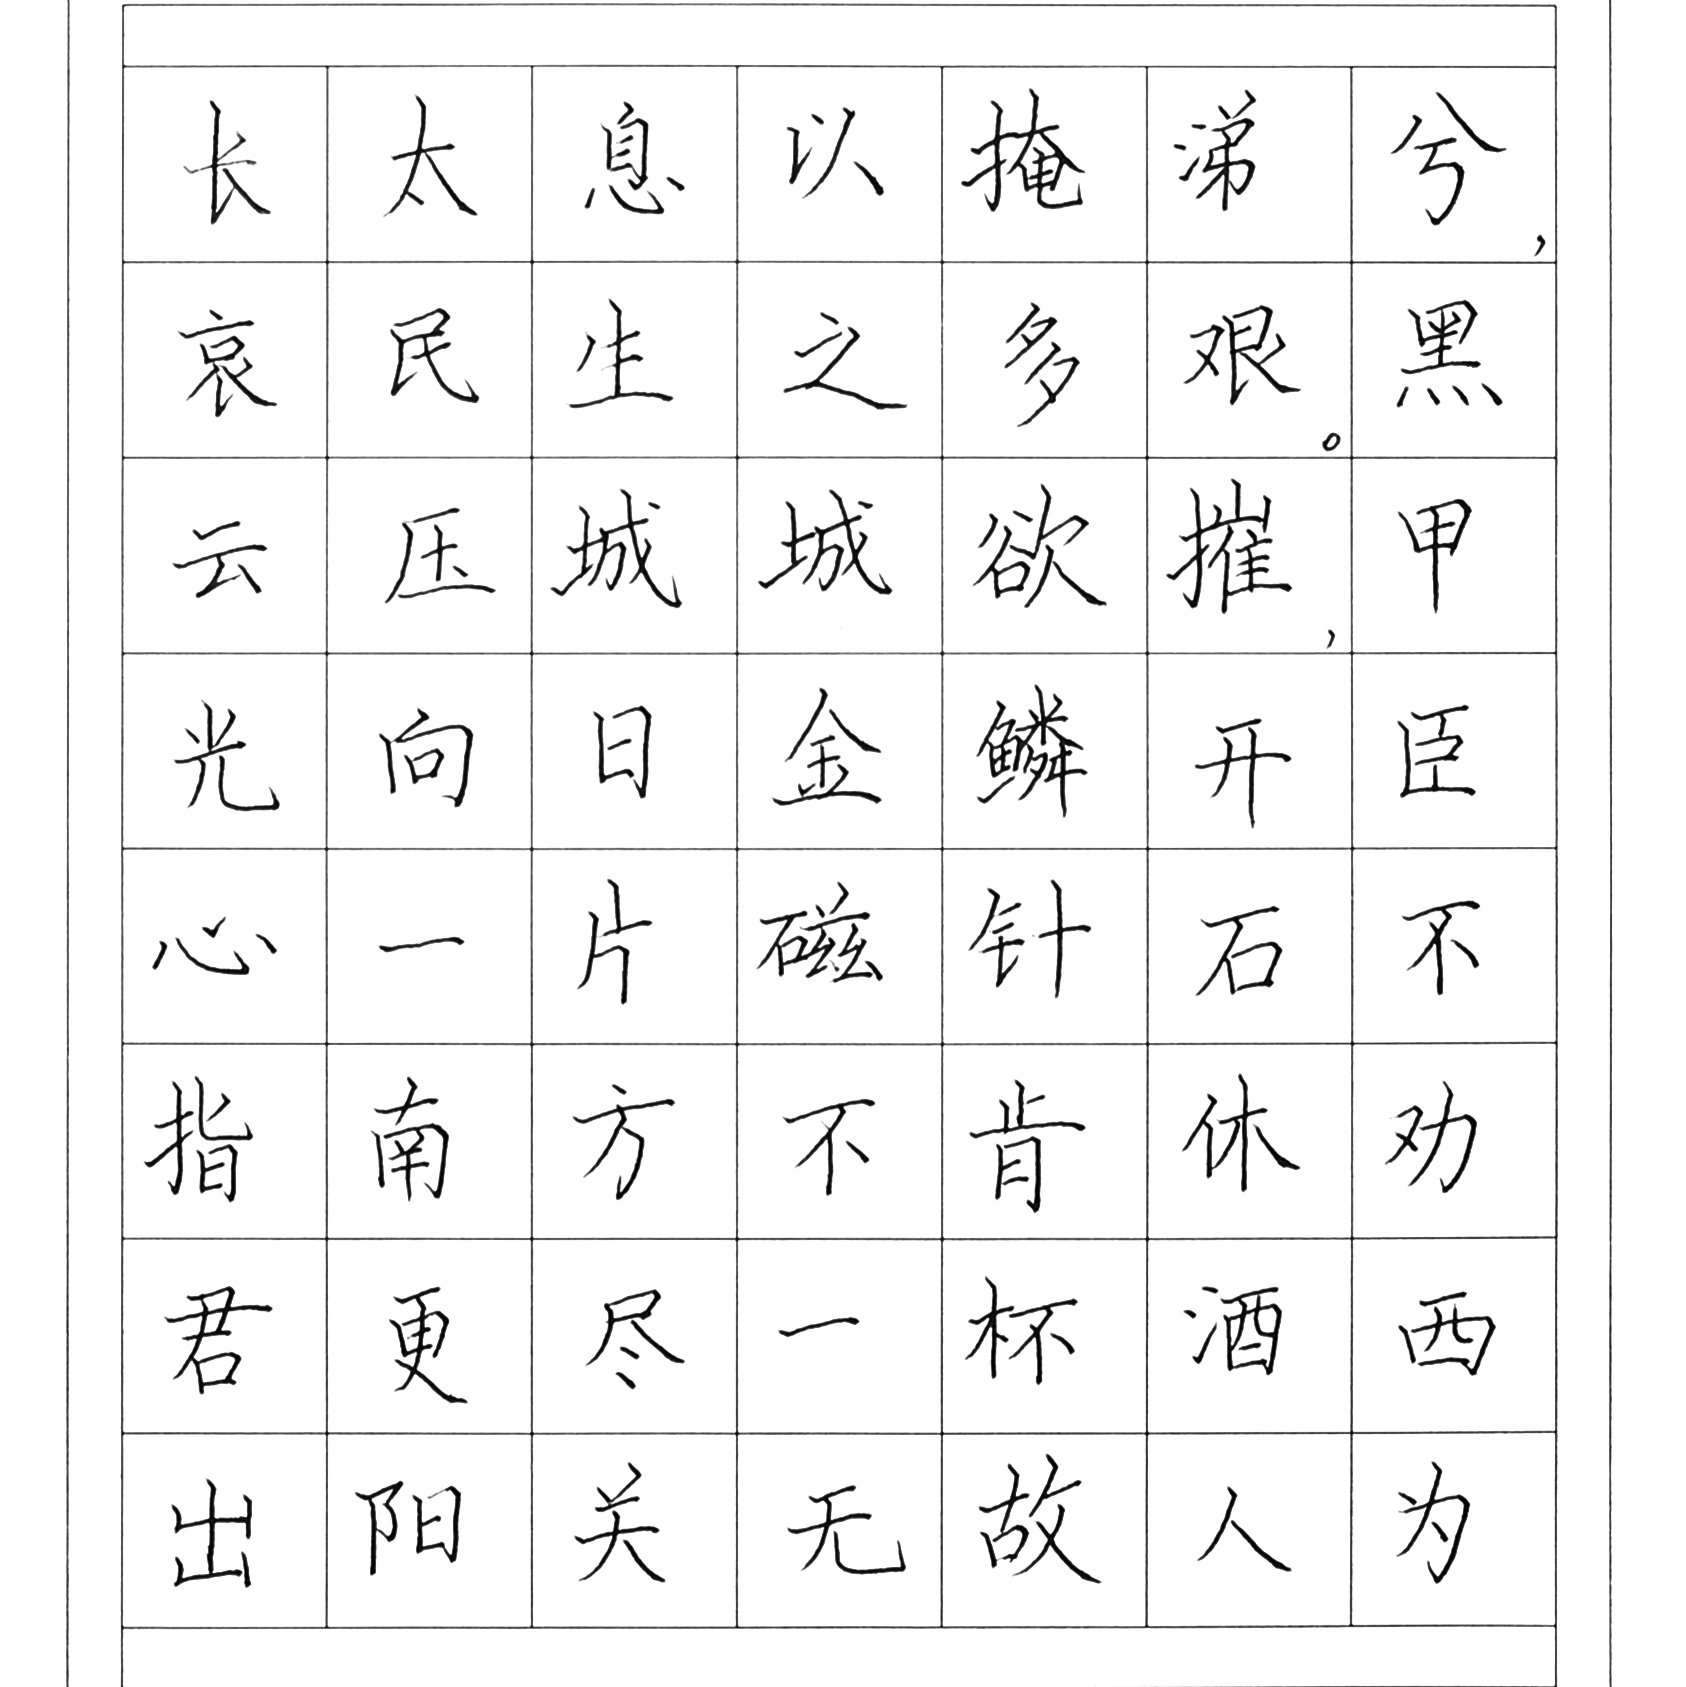 长太息以掩涕兮，
哀民生之多艰。黑
云压城城欲摧，甲
光向日金鳞开臣
心一片磁针石不
指南方不肯休劝
君更尽一杯酒西
出阳关无故人为